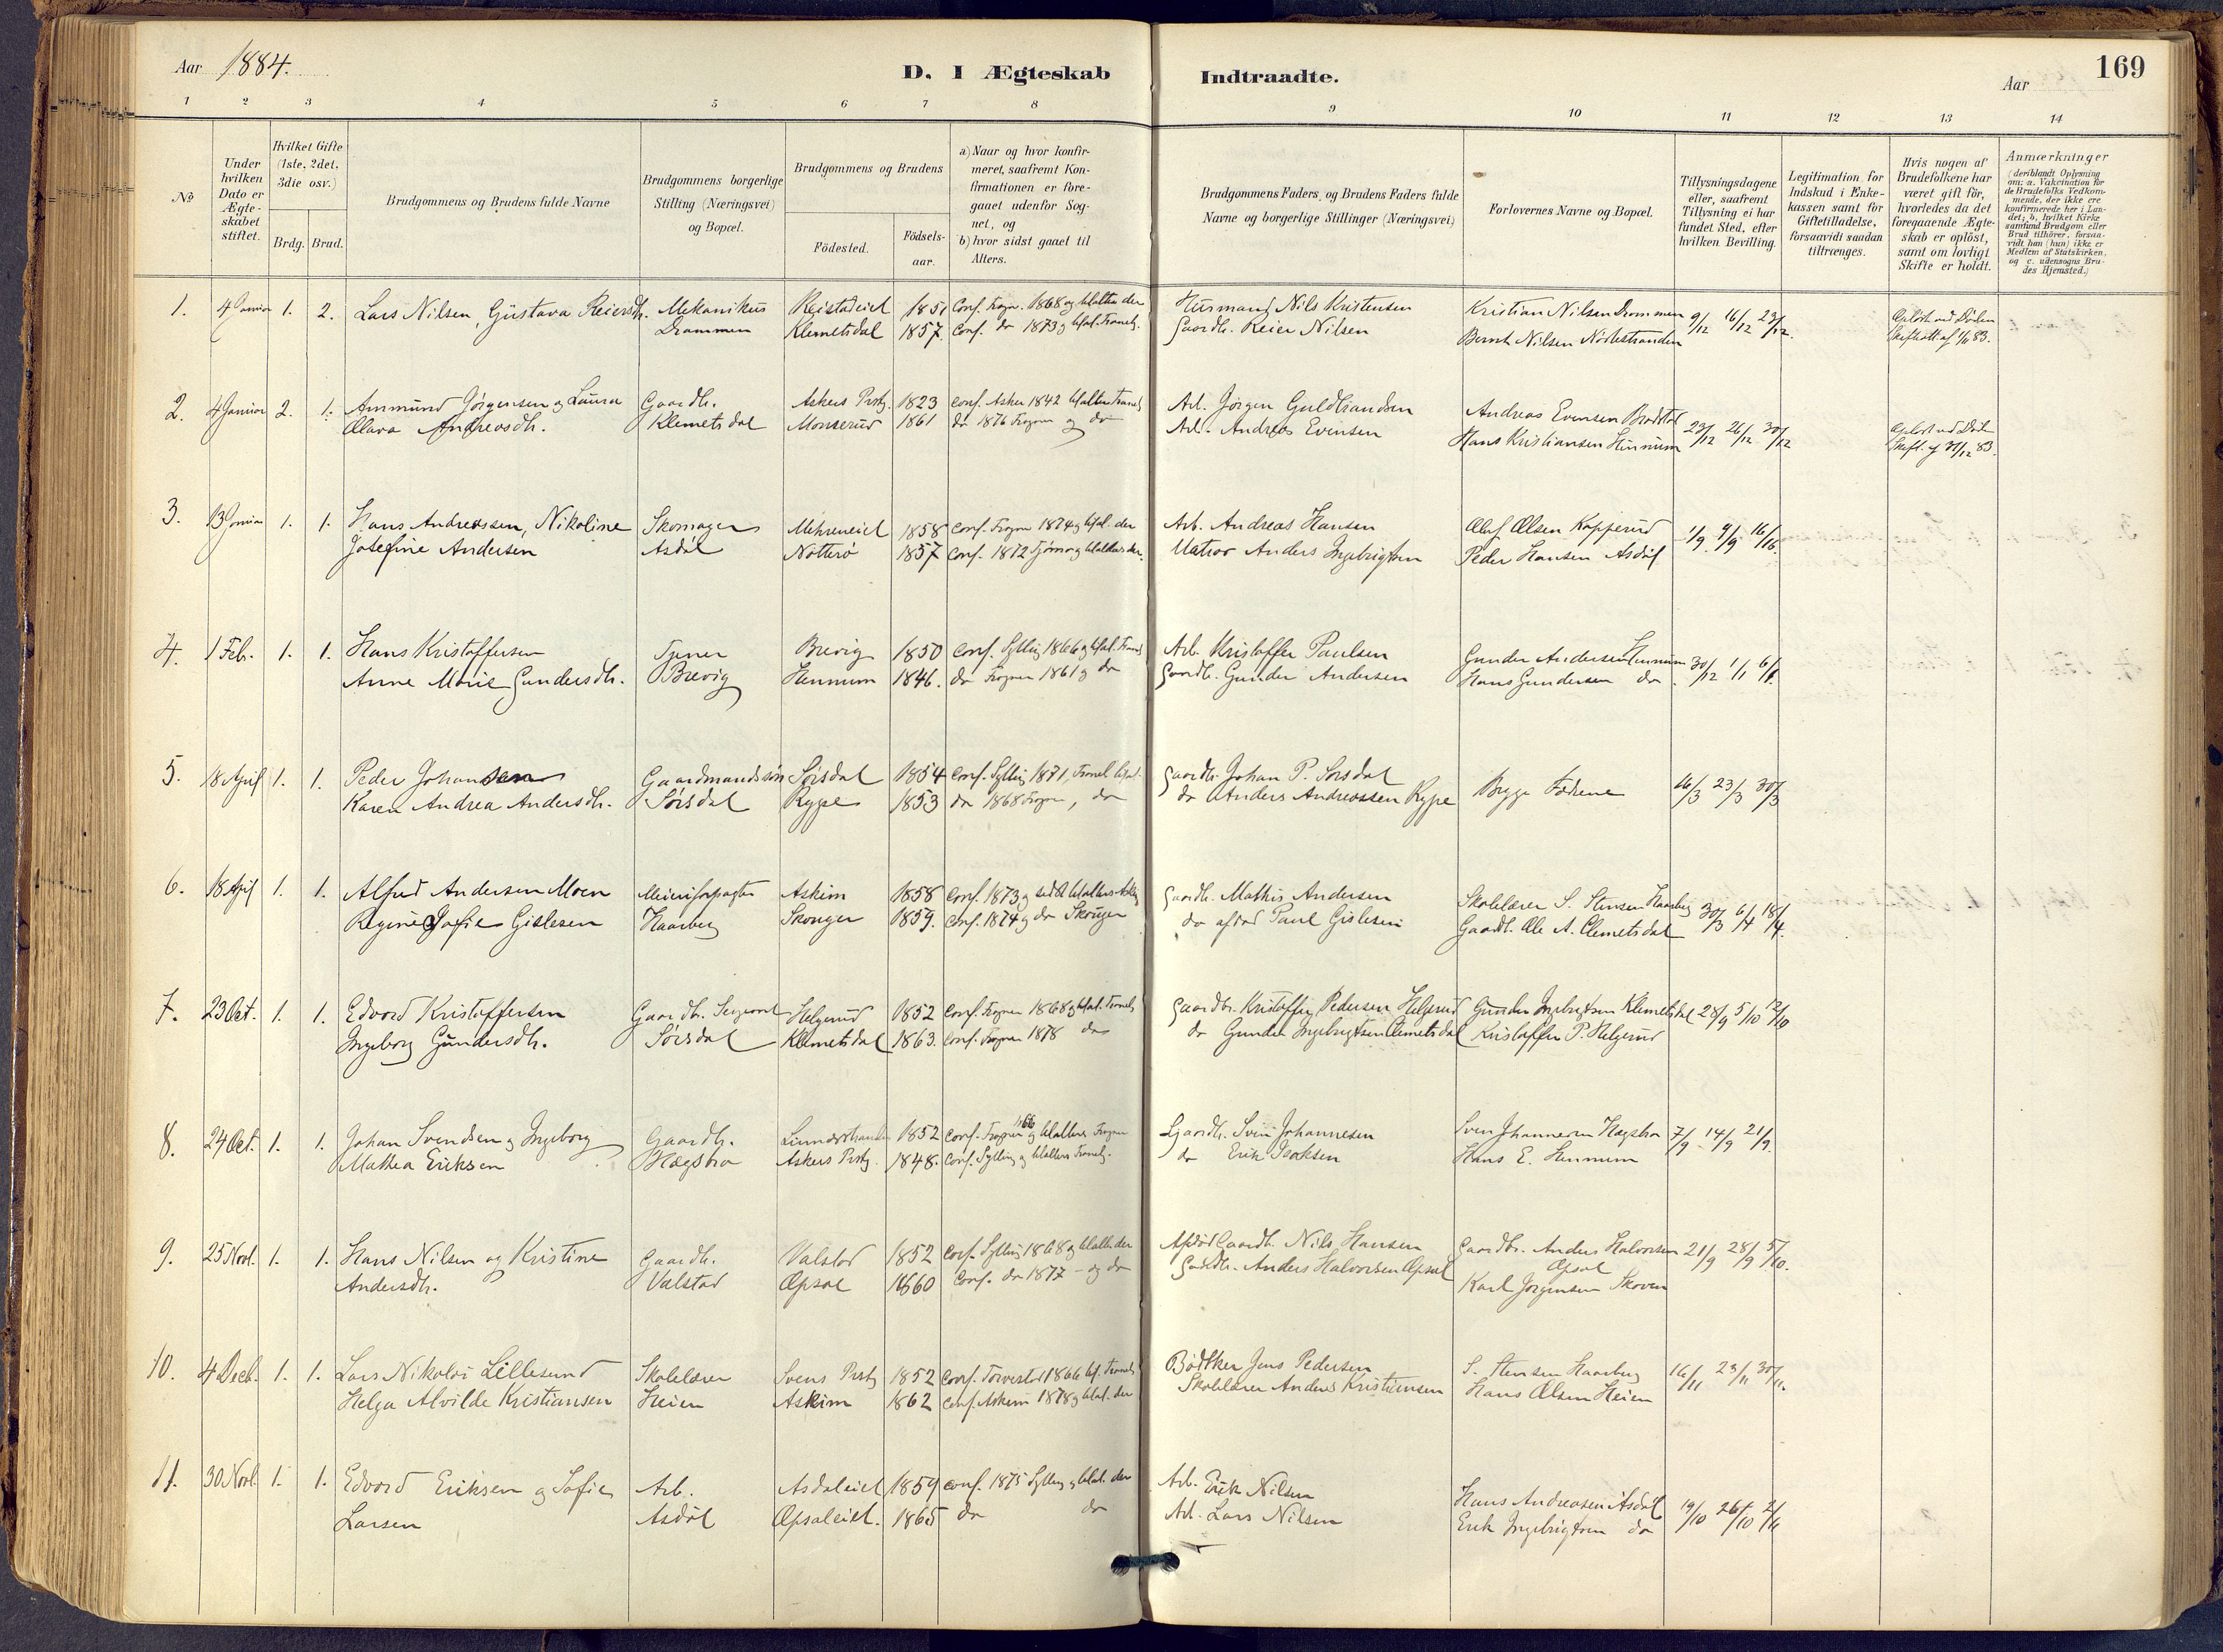 Aar 1884.
D. I Ægteskab Indtraadte.
Aar
169
1 2 3 4 5 6 7 8 9 10 11 12 13 14
No
Under hvilken Dato er Ægteskabet stiftet.
Hvilket Gifte (1ste, 2det, 3die osv.)
Brdg. Brud.
Brudgommens og Brudens fulde Navne
Brudgommens borgerlige Stilling (Næringsvei) og Bopæl.
Brudgommens og Brudens
Födested.
Födselsaar.
a) Naar og hvor konfirmeret, saafremt Konfirmationen er foregaaet udenfor Sognet, og
b) hvor sidst gaaet til Alters.
Brudgommens Faders og Brudens Faders fulde Navne og borgerlige Stillinger (Næringsvei)
Forlovernes Navne og Bopæl.
Tillysningsdagene eller, saafremt Tillysning ei har fundet Sted, efter hvilken Bevilling.
Legitimation for Indskud i Enkekassen samt for Giftetilladelse, forsaavidt saadan tiltrænges.
Hvis nogen af Brudefolkene har været gift för, hvorledes da det foregaaende Ægteskab er oplöst, samt om lovligt Skifte er holdt.
Anmærkninger (deriblandt Oplysning om: a. Vakcination for de Brudefolks Vedkommende, der ikke ere konfirmerede her i Landet; b. hvilket Kirkesamfund Brudgom eller Brud tilhörer, forsaavidt han (hun) ikke er Medlem af Statskirken, og c. udensogns Brudes Hjemsted.)
1. 4 Januar 1. 2. Lars Nilsen, Gustava Reiersdtr. Mekanikus Reistadeiet 1851 Conf. Frogn. 1868 og tilalters der Husmand Nils Kristensen Kristian Nilsen Drammen 9/12 16/12 23/12.
Drammen Klemetsdal 1857. Conf. do 1873 Gaardb. Reier Nilsen Bernt Nilsen
2. 4 Januar 2. 1. Ammund Jörgensen og Laura Gaardb. Askers Prstg. 1823 Conf. Asker 1842 Arb. Jörgen Guldbrandsen Andreas Evensen
Olava Andreasdtr. Klemetsdal Monserud 1861 do 1876 Frogner og do Arb. Andreas Evensen Hans Kristiansen Hennum 23/12 26/12 30/12
3. 13 Januar 1. 1. Hans Andreassen, Nikoline Skomager Mehreneiet 1858 Conf. Frogn 1874 og tilal. der Arb. Andreas Hansen Oluf Olsen Kopperud
Josefine Andersen Asdöl Nötterö 1857 Conf. 1872 Tjömö Matros Anders Ingebrigtsen Peder Hansen Asdöl
4. 1 Feb. 1. 1. Hans Kristoffersen Brevig 1850 Conf. Sylling 1866 Arb. Kristoffer Paulsen Gunder Andersen Hennum 30/12 1/1 6/1.
Anne Marie Gundersdtr. Brevig Hennum 1846. do Frogner 1861 og do Gaardb. Gunder Andersen Hans Gundersen do
5. 18 April 1. 1. Peder Johansen Gaardmandssön Sörsdal 1854 Conf. Sylling 1871, Gaardb. Johan P. Sörsdal 16/3 23/3 30/3
Karen Andrea Andersdtr. Sörsdal Rype 1853 do 1868 Frogn, do do Anders Andreassen Rype Begge Fædrene
6. 18 April 1. 1. Alfred Andersen Moen Meieriforpagter Askim 1858 Conf. 1873 Gaardb. Mathis Andersen Skolelærer S. Stensen Haarberg
Regine Sofie Gislesen Haarberg Skouger 1859. Conf. 1874 og do Skouger do afdöd Paul Gislesen Gaardb. Ole A. Clemetsdal 30/3 6/4 18/4.
7. 23 Oct. 1. 1. Edvard Kristoffersen Gaardb. Sergeant Helgerud 1852 Conf. Frogner 1868 Gaardbr. Kristoffer Pedersen Helgerud Gunder Ingebrigtsen Klemetsdal 28/9 5/10 12/10
Ingeborg Gundersdtr. Sörsdal Klemetsdal 1863. Conf. Frogner 1878 do do Gunder Ingebrigtsen Clemetsdal Kristoffer P. Helgerud
8. 24 Oct. 1. 1. Johan Svendsen og Ingeborg Gaardb. 1852 Conf. Frogner 1866 og tilalters Frogner Gaardb. Sven Johannesen Sven Johannesen Hægstra 7/9 14/9 21/9.
Mathea Eriksen Hægstra Askers Prstg. 1848. Conf. Sylling og tilalters do Erik Isaksen Hans E. Hennum
9. 25 Novb. 1. 1. Hans Nilsen og Kristine Gaardb. Valstad 1852 Conf. Sylling 1868 og tilalt. der Afdöd Gaardb. Nils Hansen Gaardbr. Anders Halvorsen 21/9 28/9 5/10.
Andersdtr. Valstad Opsal 1860 Conf. do 1877 - og do Gaardb. Anders Halvorsen Opsal Opsal
Karl Jörgensen Skoven
10. 4 Decb. 1. 1. Lars Nikolai Lillesund Skolelærer Prstg 1852 Conf. 1866 Bödtker Jens Pedersen S. Stensen Haarberg 16/11 23/11 30/11.
Helga Alvilde Kristiansen Heien Askim 1862 Conf. Askim 1878 og tilal. der Skolelærer Anders Kristiansen Hans Olsen Heien
11. 30 Novb. 1. 1. Edvard Eriksen og Sofie Arb. Asdöleiet 1859 Conf. 1875 Sylling og tilal. der Arb. Erik Nilsen Hans Andreasen Asdöl
Larsen Asdöl Opsaleiet. 1865 do do Arb. Lars Nilsen Erik Ingebrigtsen do 19/10 26/10 2/11